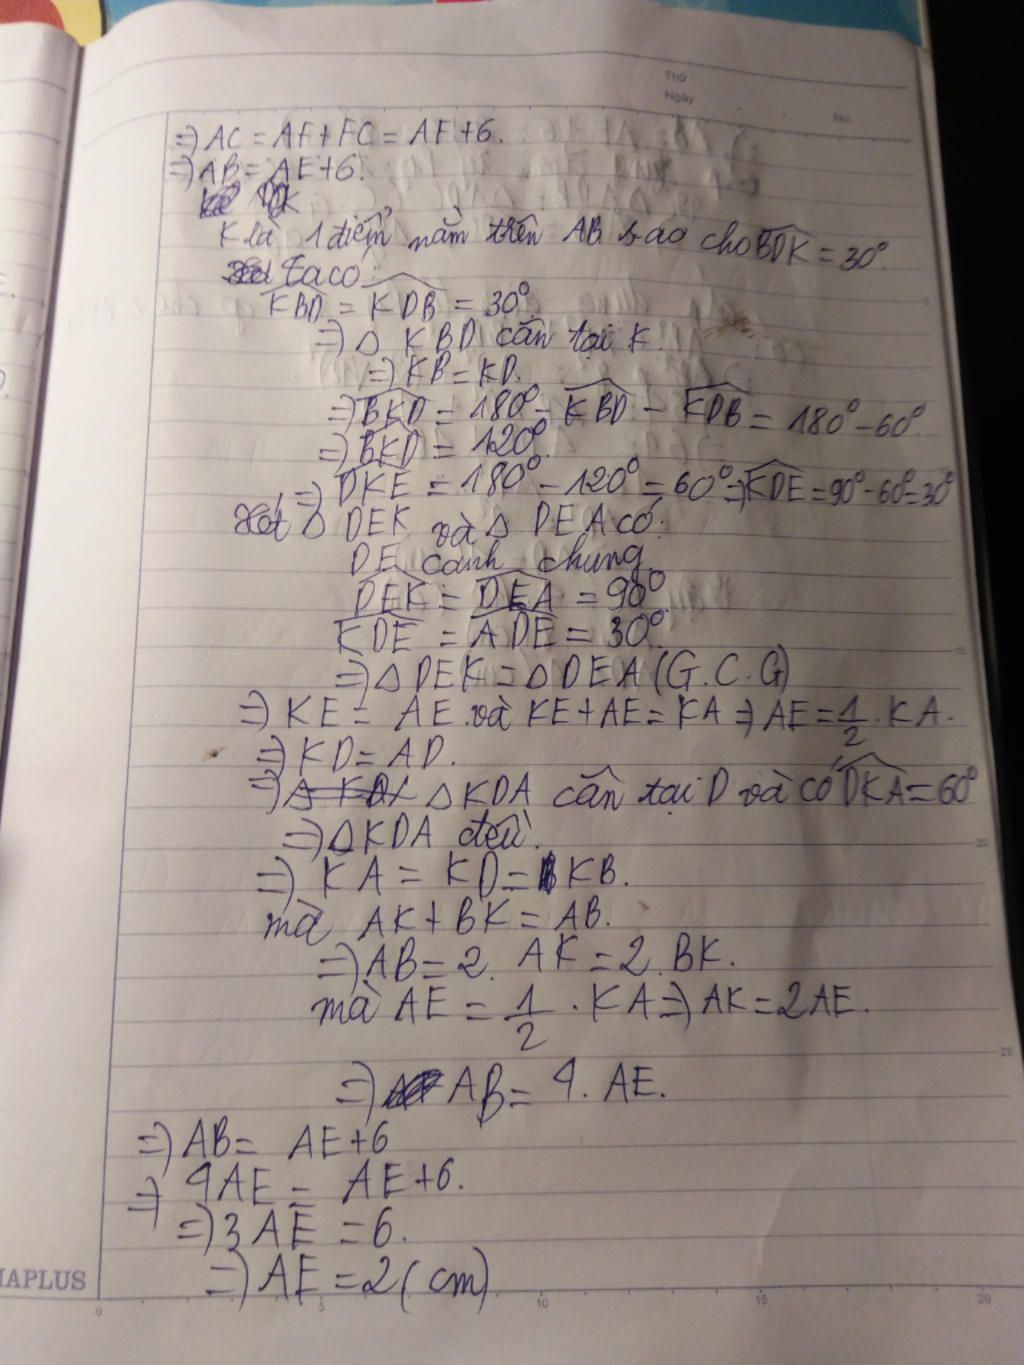 Thứ
Ngày
No.
=> AC = AF + FC = AF + 6.
=> AB = AE + 6.
K là 1 điểm nằm trên AB sao cho BDK = 30°.
ta có:
KBD = KDB = 30°
=> △ KBD cân tại K.
=> KB = KD.
=> BKD = 180° - KBD - KDB = 180° - 60°.
=> BKD = 120°.
=> DKE = 180° - 120° = 60° => KDE = 90° - 60° = 30°
Xét △ DEK và △ DEA có:
DE cạnh chung
DEK = DEA = 90°
KDE = ADE = 30°.
=> △ DEK = △ DEA (G.C.G)
=> KE = AE và KE + AE = KA => AE = 1/2 . KA.
=> KD = AD.
=> △ KDA cân tại D và có DKA = 60°
=> △ KDA đều.
=> KA = KD = KB.
mà AK + BK = AB.
=> AB = 2. AK = 2. BK.
mà AE = 1/2 . KA => AK = 2AE.
=> AB = 4. AE.
=> AB = AE + 6
=> 4AE = AE + 6.
=> 3 AE = 6.
=> AE = 2 (cm)
APLUS
0 5 10 15 20